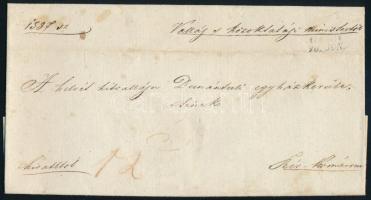 1587 sz Vallás s közoktatási ministertől
A helvét hitvallásu Dunántuli egyházkerület-
nek
hivatalból 12 Rév-Komárom